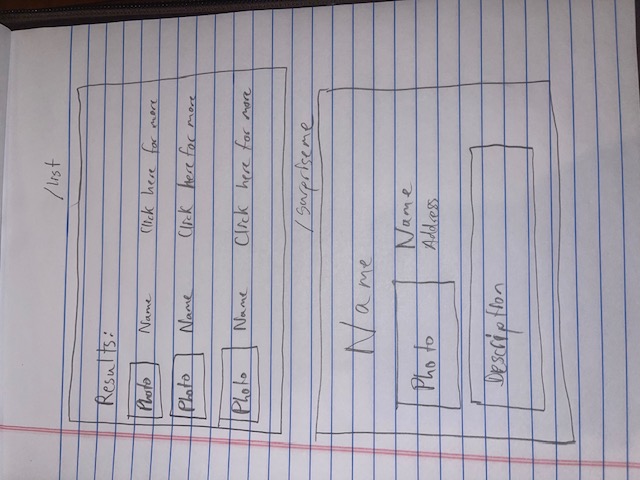 /list
Results:
Photo Name Click here for more
Photo Name Click here for more
Photo Name Click here for more
/surpriseme
Name
Photo
Name
Address
Description